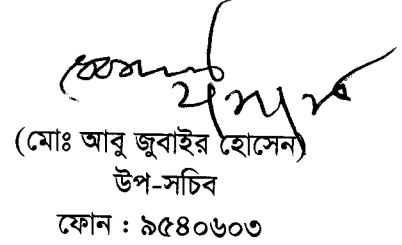 (মোঃ আবু জুবাইর হোসেন)
উপ-সচিব
ফোন : ৯৫৪০৬০৩